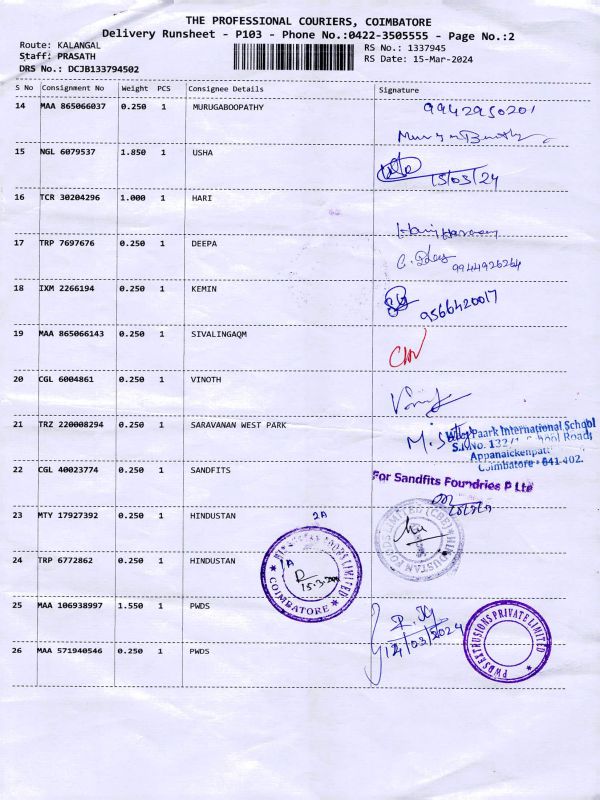 THE PROFESSIONAL COURIERS, COIMBATORE
Delivery Runsheet - P103 - Phone No.:0422-3505555 - Page No.:2
Route: KALANGAL
RS No.: 1337945
Staff: PRASATH
RS Date: 15-Mar-2024
DRS No.: DCJB133794502
S No Consignment No Weight PCS Consignee Details Signature
14 MAA 865066037 0.250 1 MURUGABOOPATHY 9942950201
15 NGL 6079537 1.850 1 USHA
15/03/24
16 TCR 30204296 1.000 1 HARI
17 TRP 7697676 0.250 1 DEEPA
9944926264
18 IXM 2266194 0.250 1 KEMIN
9566420017
19 MAA 865066143 0.250 1 SIVALINGAQM
20 CGL 6004861 0.250 1 VINOTH
21 TRZ 220008294 0.250 1 SARAVANAN WEST PARK
Paark International School
School Road,
Appanaickenpatt
Coimbatore - 641 402.
22 CGL 40023774 0.250 1 SANDFITS
For Sandfits Foundries P Ltd
23 MTY 17927392 0.250 1 HINDUSTAN 2A
HINDUSTAN FOODS LIMITED (CBE)
24 TRP 6772862 0.250 1 HINDUSTAN
HINDUSTAN FOODS LIMITED
COIMBATORE
1A
15-3-
25 MAA 106938997 1.550 1 PWDS
14/03/2024
PWDS EXTRUSIONS PRIVATE LIMITED
26 MAA 571940546 0.250 1 PWDS